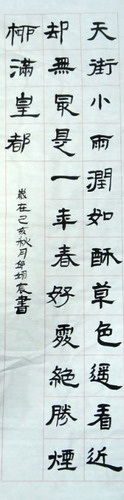 天街小雨潤如酥草色遥看近
却無最是一年春好處絕勝煙
柳滿皇都
歲在己亥秋月書